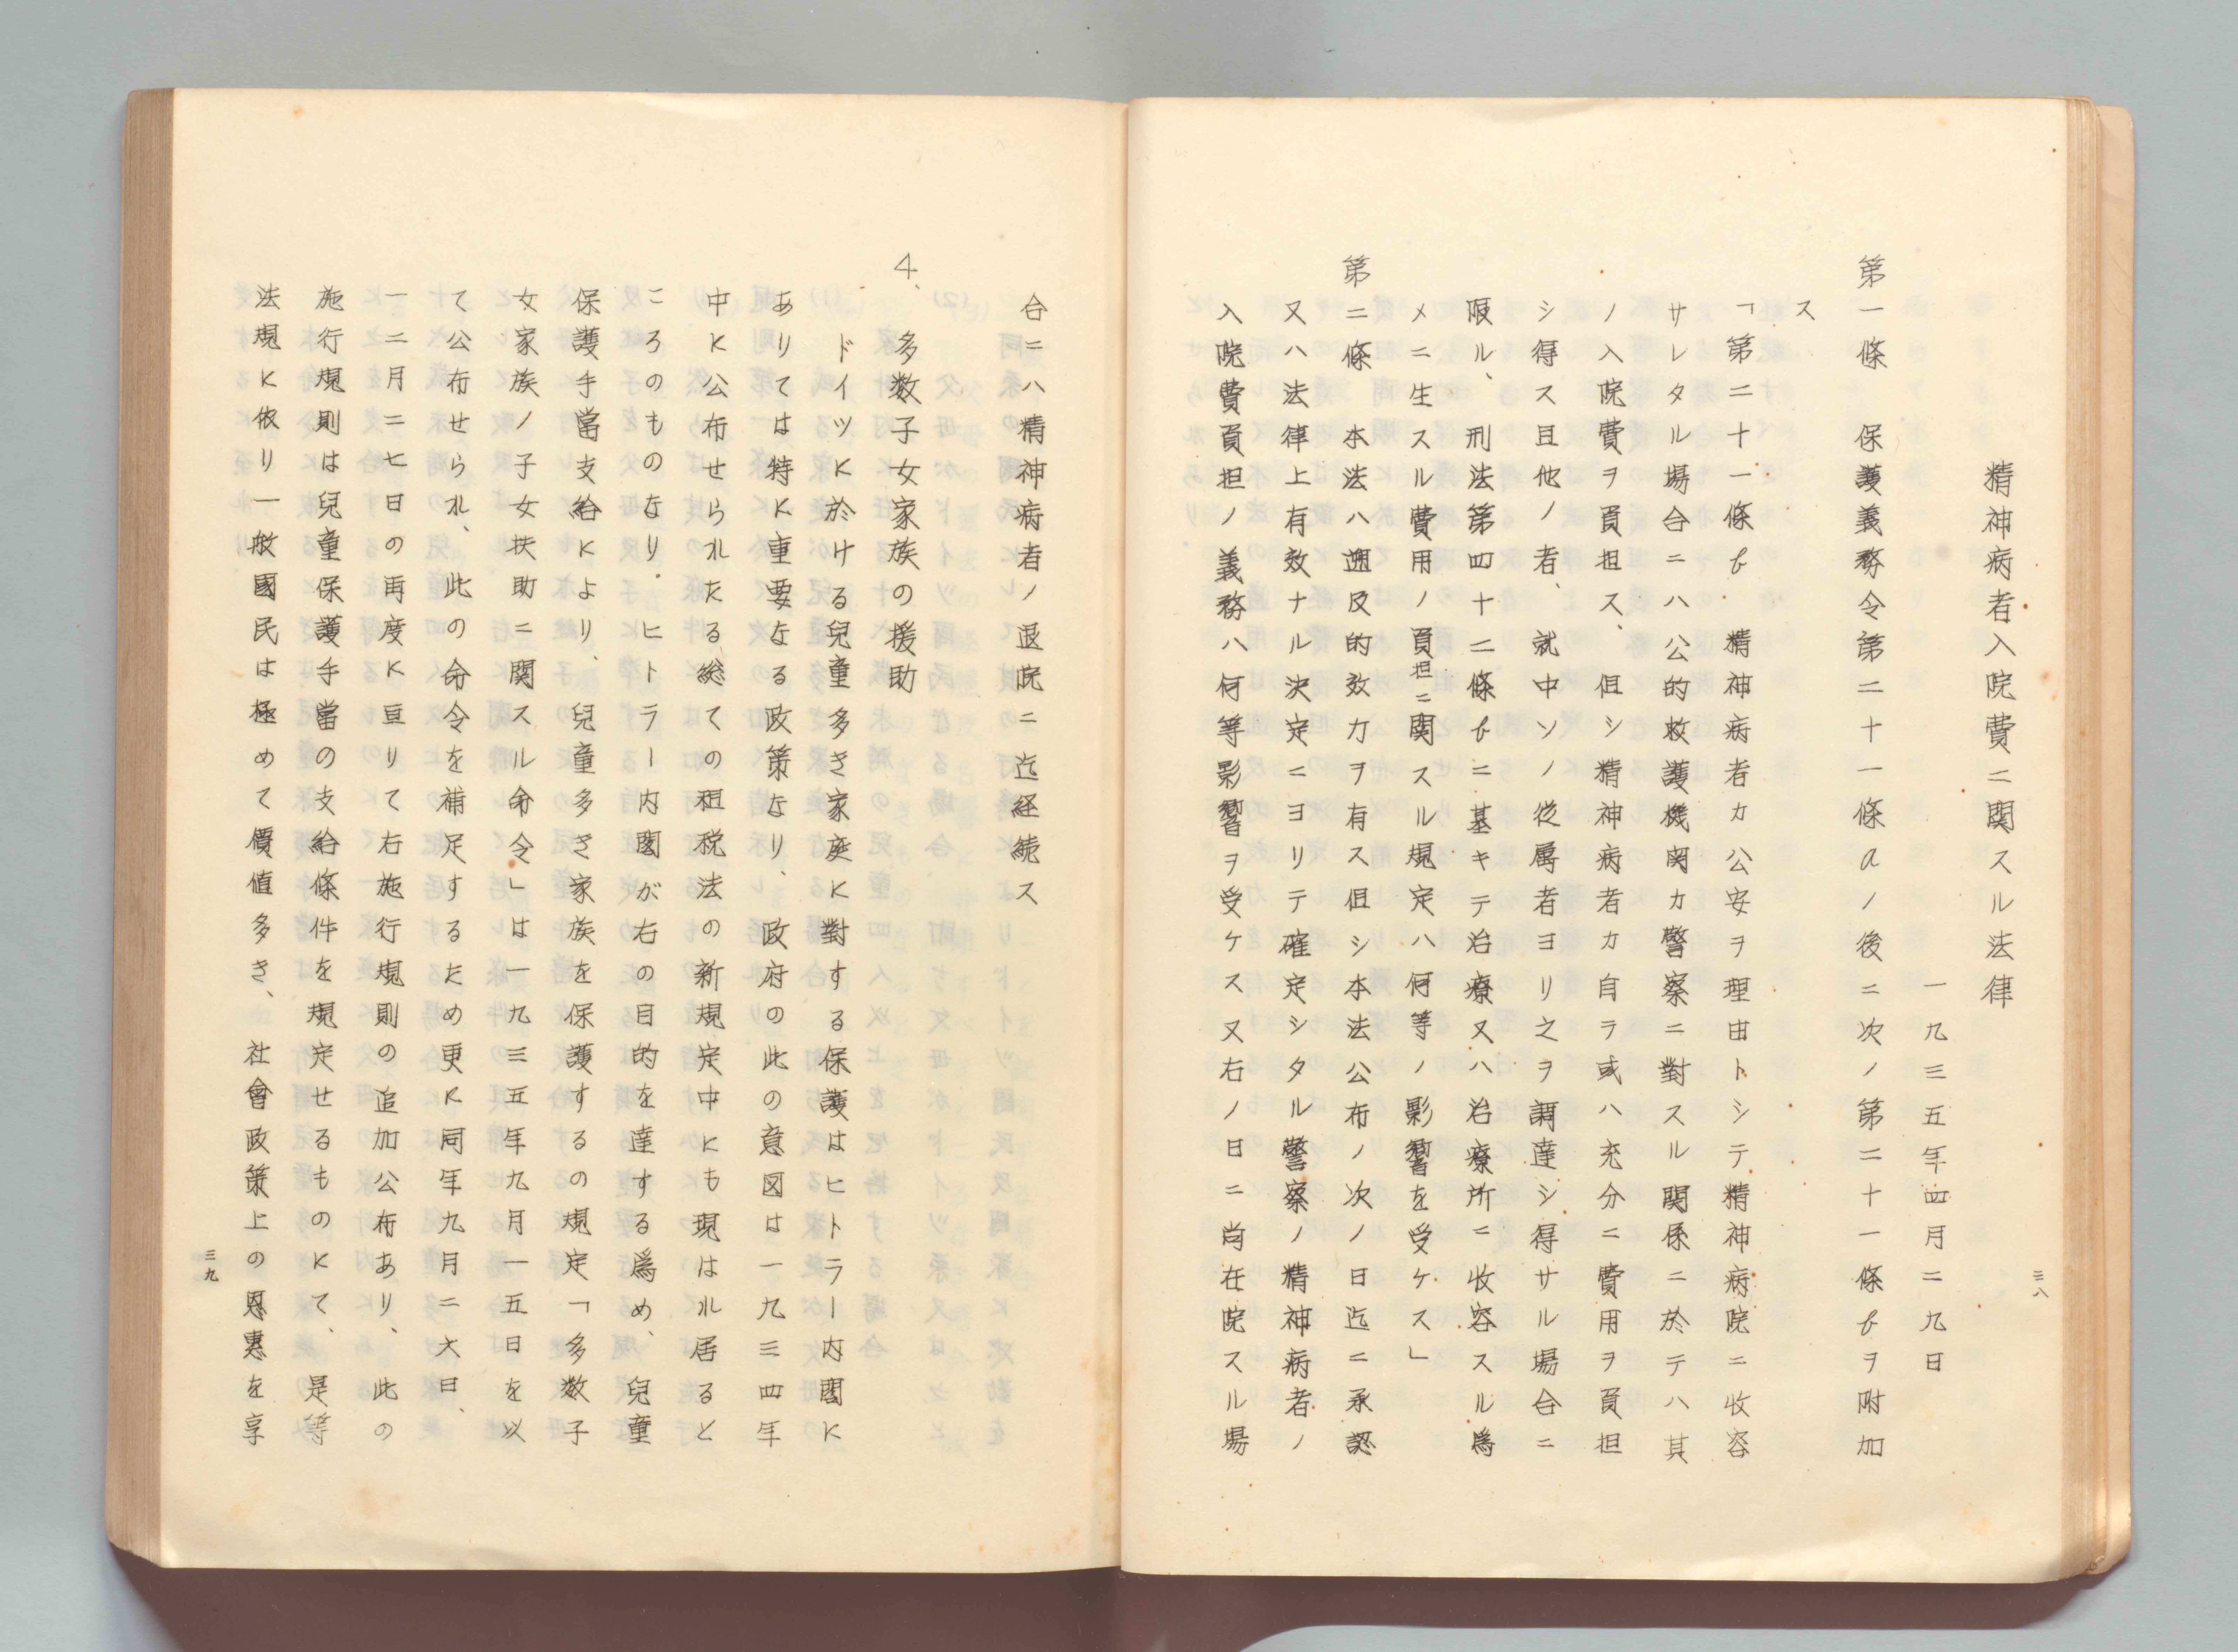 三八
精神病者入院費ニ関スル法律
一九三五年四月二九日
第一條　保護義務令第二十一條aノ後ニ次ノ第二十一條bヲ附加
ス
「第二十一條b　精神病者カ公安ヲ理由トシテ精神病院ニ收容
サレタル場合ニハ公的救護機関カ警察ニ對スル関係ニ於テハ其
ノ入院費ヲ負担ス、但シ精神病者カ自ラ或ハ充分ニ費用ヲ負担
シ得ス且他ノ者、就中ソノ従属者ヨリ之ヲ調達シ得サル場合ニ
限ル、刑法第四十二條bニ基キテ治療又ハ治療所ニ收容スル為
メニ生スル費用ノ負担ニ関スル規定ハ何等ノ影響を受ケス」
第二條　本法ハ遡及的效力ヲ有ス但シ本法公布ノ次ノ日迄ニ承認
又ハ法律上有效ナル決定ニヨリテ確定シタル警察ノ精神病者ノ
入院費負担ノ義務ハ何等影響ヲ受ケス又右ノ日ニ尚在院スル場
合ニハ精神病者ノ退院ニ迄経続ス
4、多数子女家族の援助
ドイツに於ける兒童多き家庭に對する保護はヒトラー内閣に
ありては特に重要なる政策なり、政府の此の意図は一九三四年
中に公布せられたる総ての租税法の新規定中にも現はれ居ると
ころのものなり．ヒトラー内閣が右の目的を達する爲め、兒童
保護手當支給により、兒童多き家族を保護するの規定「多数子
女家族ノ子女扶助ニ関スル命令」は一九三五年九月一五日を以
て公布せられ、此の命令を補足するため更に同年九月二六日、
一二月二七日の再度に亘りて右施行規則の追加公布あり、此の
施行規則は兒童保護手當の支給條件を規定せるものにて、是等
法規に依り一般國民は極めて價値多き、社會政策上の恩惠を享
三九